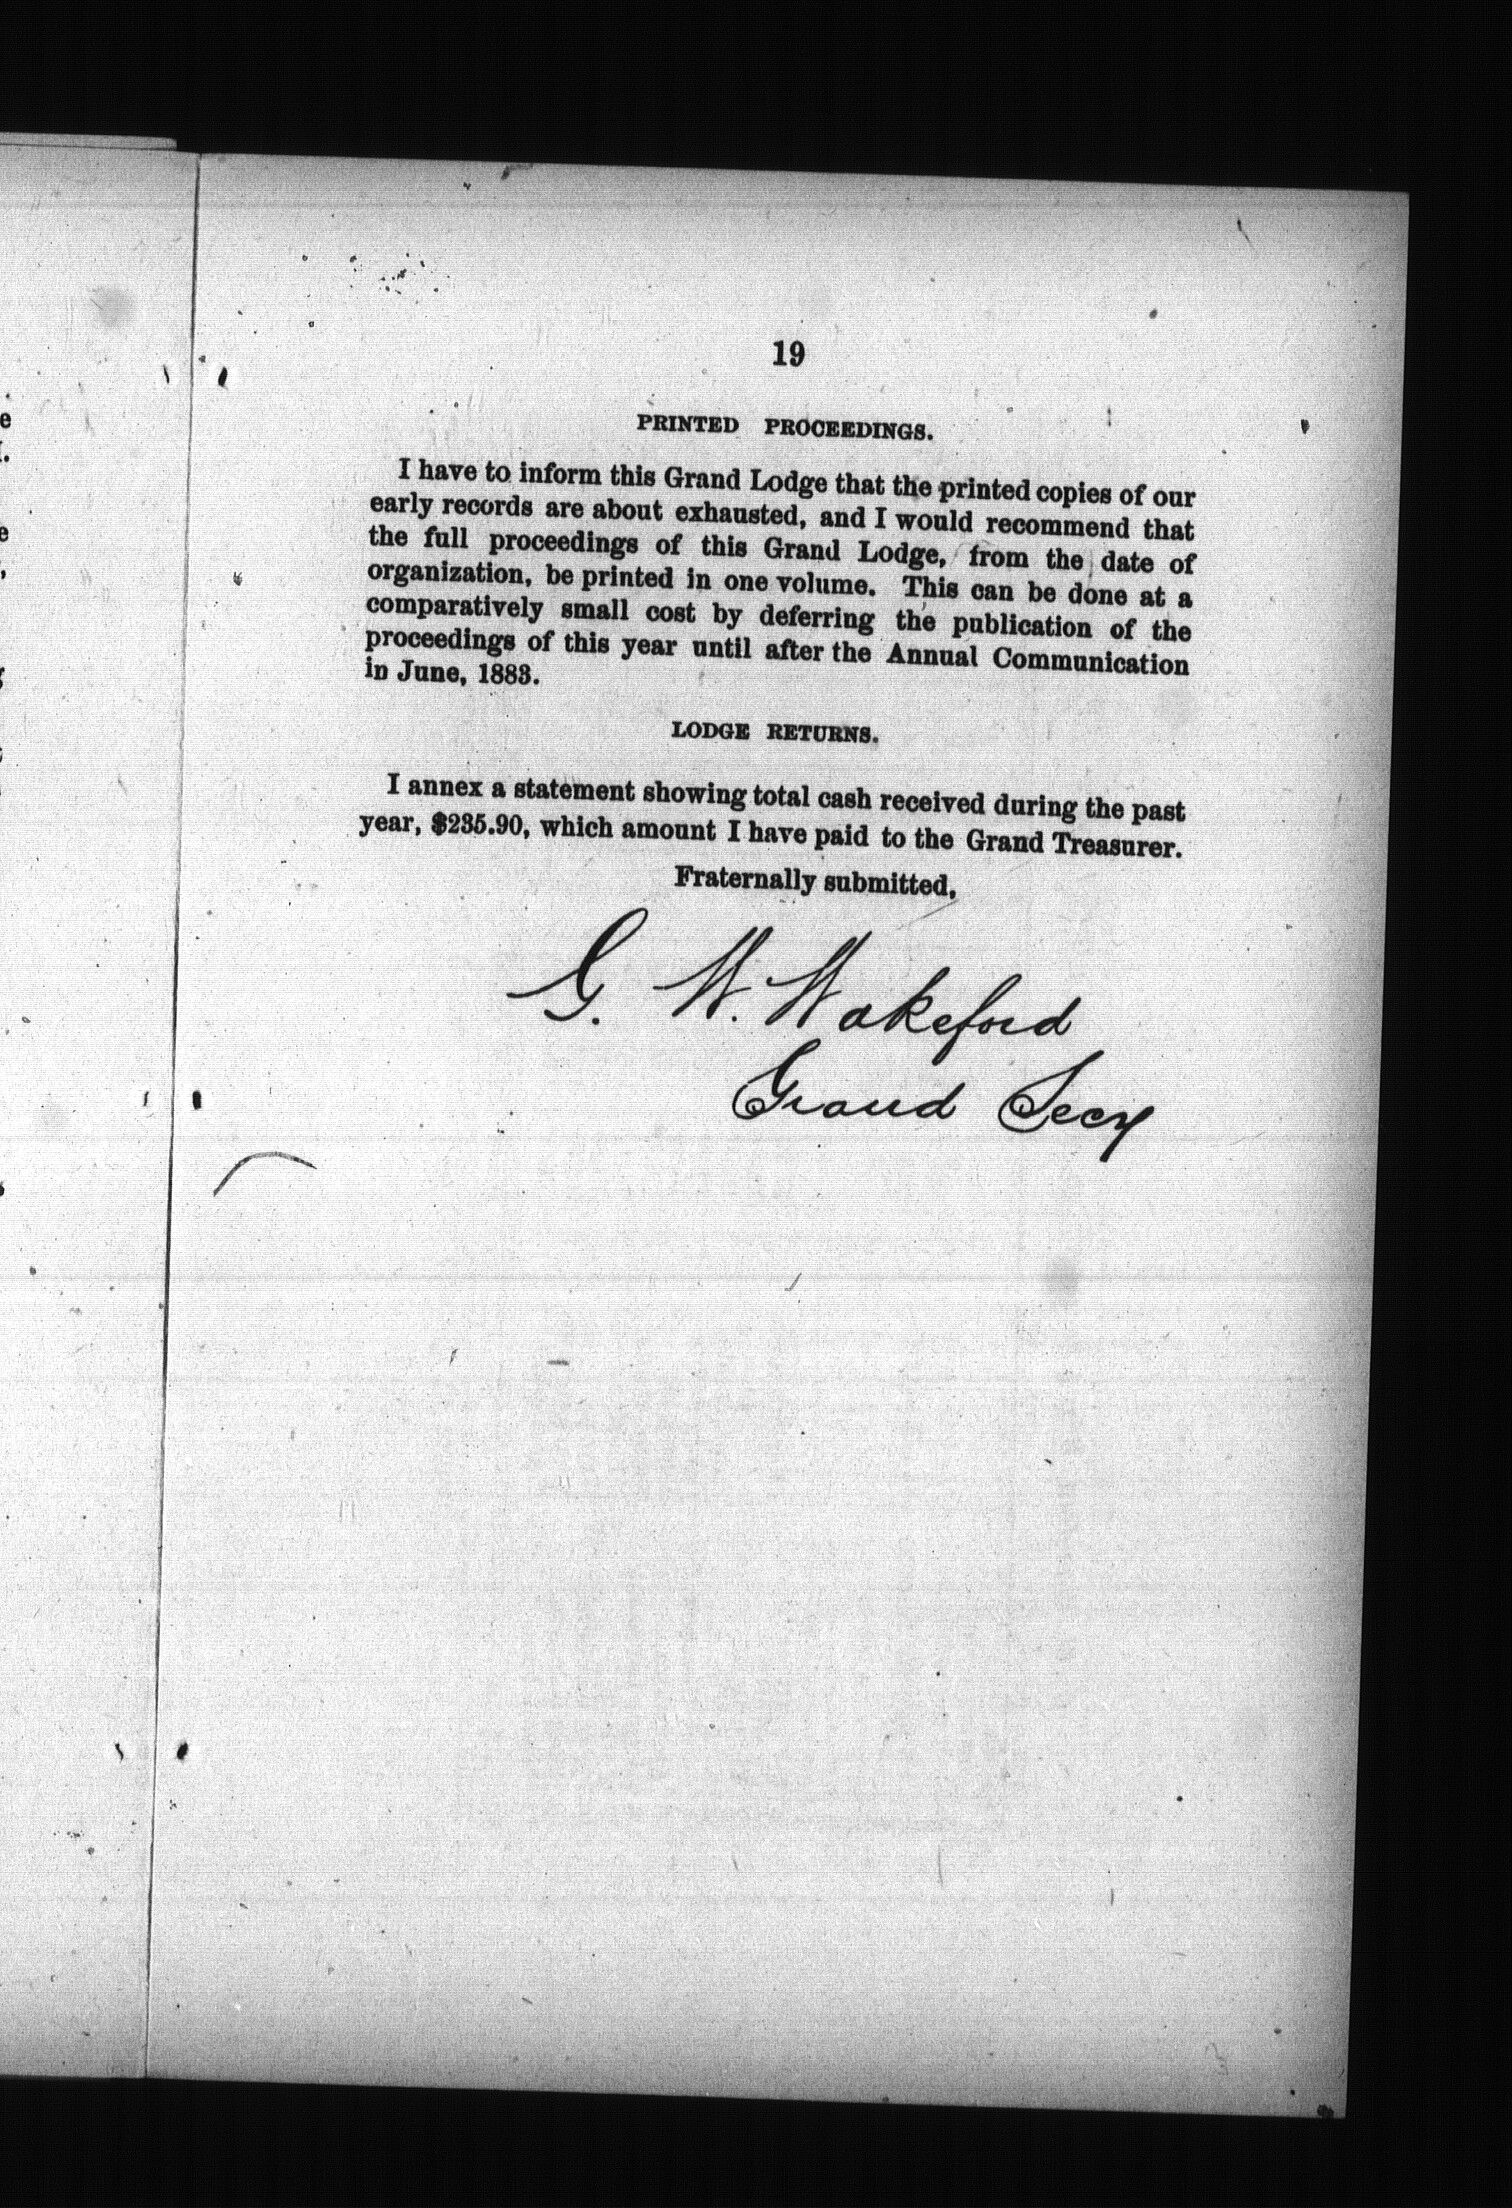 19
PRINTED PROCEEDINGS.
I have to inform this Grand Lodge that the printed copies of our
early records are about exhausted, and I would recommend that
the full proceedings of this Grand Lodge, from the date of
organization, be printed in one volume. This can be done at a
comparatively small cost by deferring the publication of the
proceedings of this year until after the Annual Communication
in June, 1883.
LODGE RETURNS.
I annex a statement showing total cash received during the past
year, $235.90, which amount I have paid to the Grand Treasurer.
Fraternally submitted,
G. W. Wakeford
Grand Secy